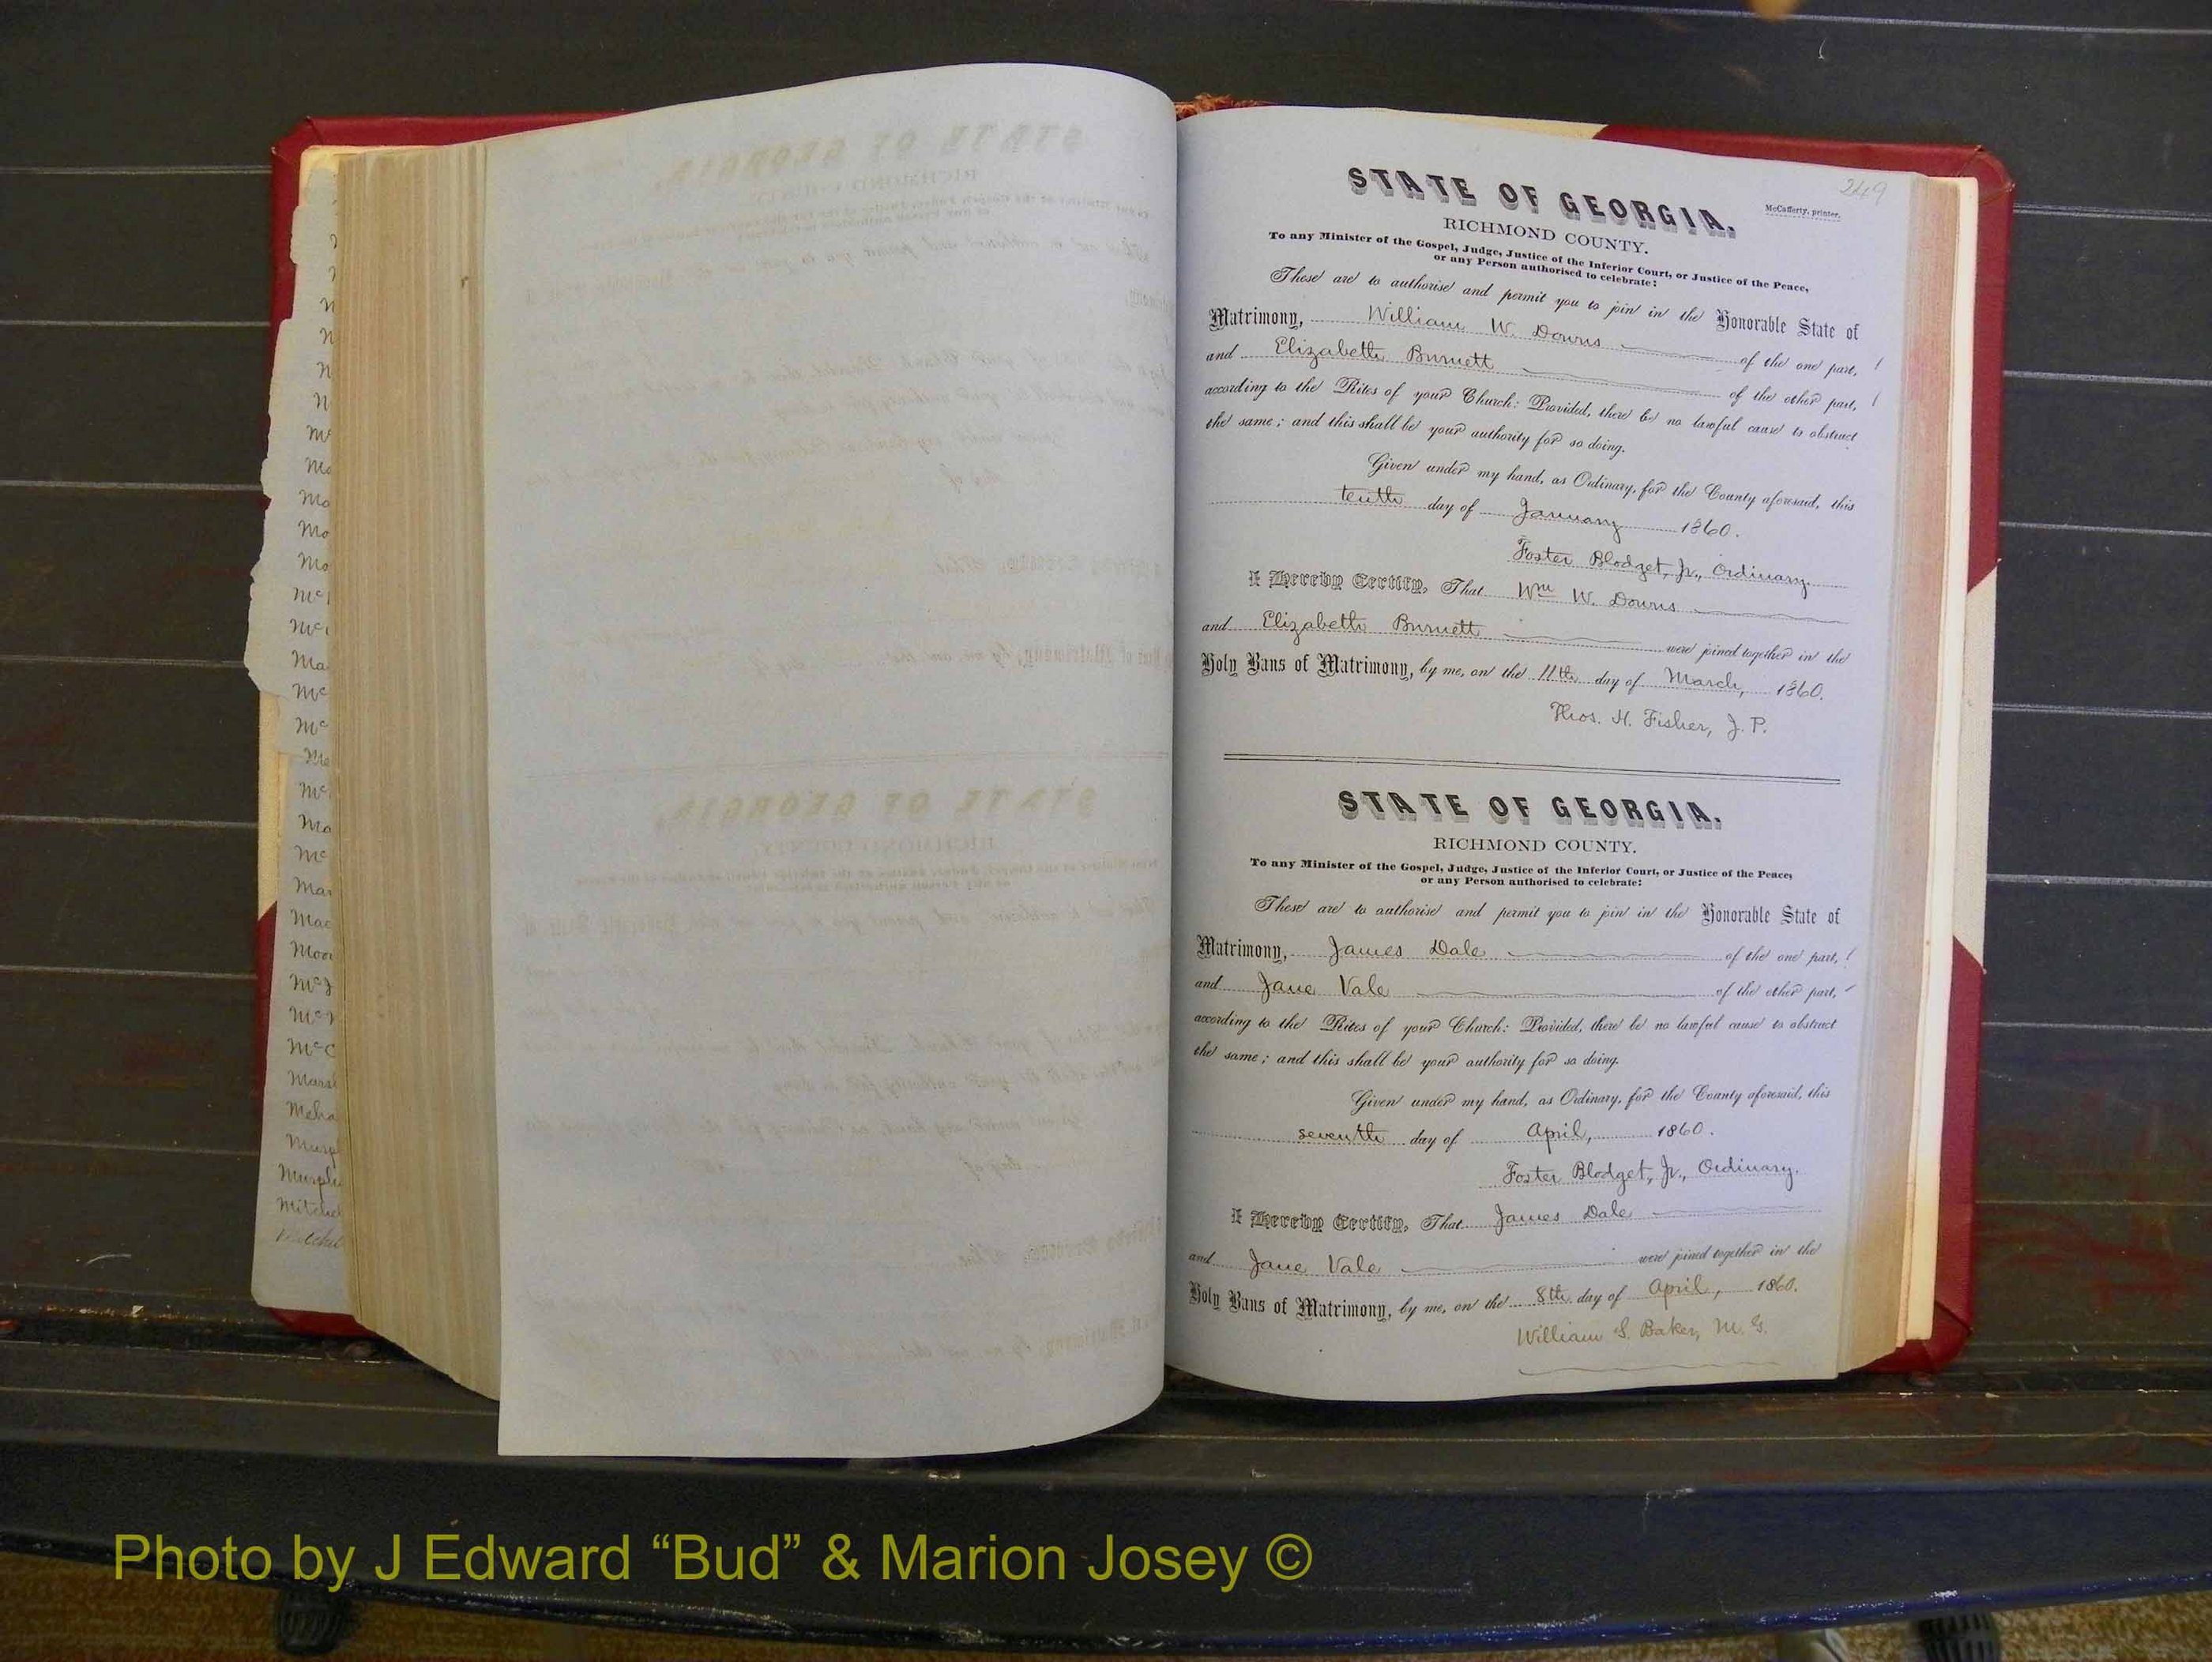 n
n
n
n
n
mc
Ma
Ma
Mo
Mo
mc
mc
Ma
mc
mc
Me
mc
Mo
mc
Mar
Mac
Moor
mc
mc
mcC
Mars
Meha
Murp
Murph
Mitchel
Mitchel
249
STATE OF GEORGIA.
McCafferty, printer.
RICHMOND COUNTY.
To any Minister of the Gospel, Judge, Justice of the Inferior Court, or Justice of the Peace,
or any Person authorised to celebrate:
These are to authorise and permit you to join in the Honorable State of
Matrimony, William W. Downs of the one part,
and Elizabeth Burnett of the other part,
according to the Rites of your Church: Provided, there be no lawful cause to obstruct
the same; and this shall be your authority for so doing.
Given under my hand, as Ordinary, for the County aforesaid, this
tenth day of January 1860.
Foster Blodget, Jr., Ordinary.
I Hereby Certify, That Wm W. Downs
and Elizabeth Burnett were joined together in the
Holy Bans of Matrimony, by me, on the 11th day of March, 1860.
Thos. H. Fisher, J. P.
STATE OF GEORGIA.
RICHMOND COUNTY.
To any Minister of the Gospel, Judge, Justice of the Inferior Court, or Justice of the Peace,
or any Person authorised to celebrate:
These are to authorise and permit you to join in the Honorable State of
Matrimony, James Dale of the one part,
and Jane Vale of the other part,
according to the Rites of your Church: Provided, there be no lawful cause to obstruct
the same; and this shall be your authority for so doing.
Given under my hand, as Ordinary, for the County aforesaid, this
seventh day of April, 1860.
Foster Blodget, Jr., Ordinary.
I Hereby Certify, That James Dale
and Jane Vale were joined together in the
Holy Bans of Matrimony, by me, on the 8th day of April, 1860.
William S. Baker, M. G.
Photo by J Edward “Bud” & Marion Josey ©